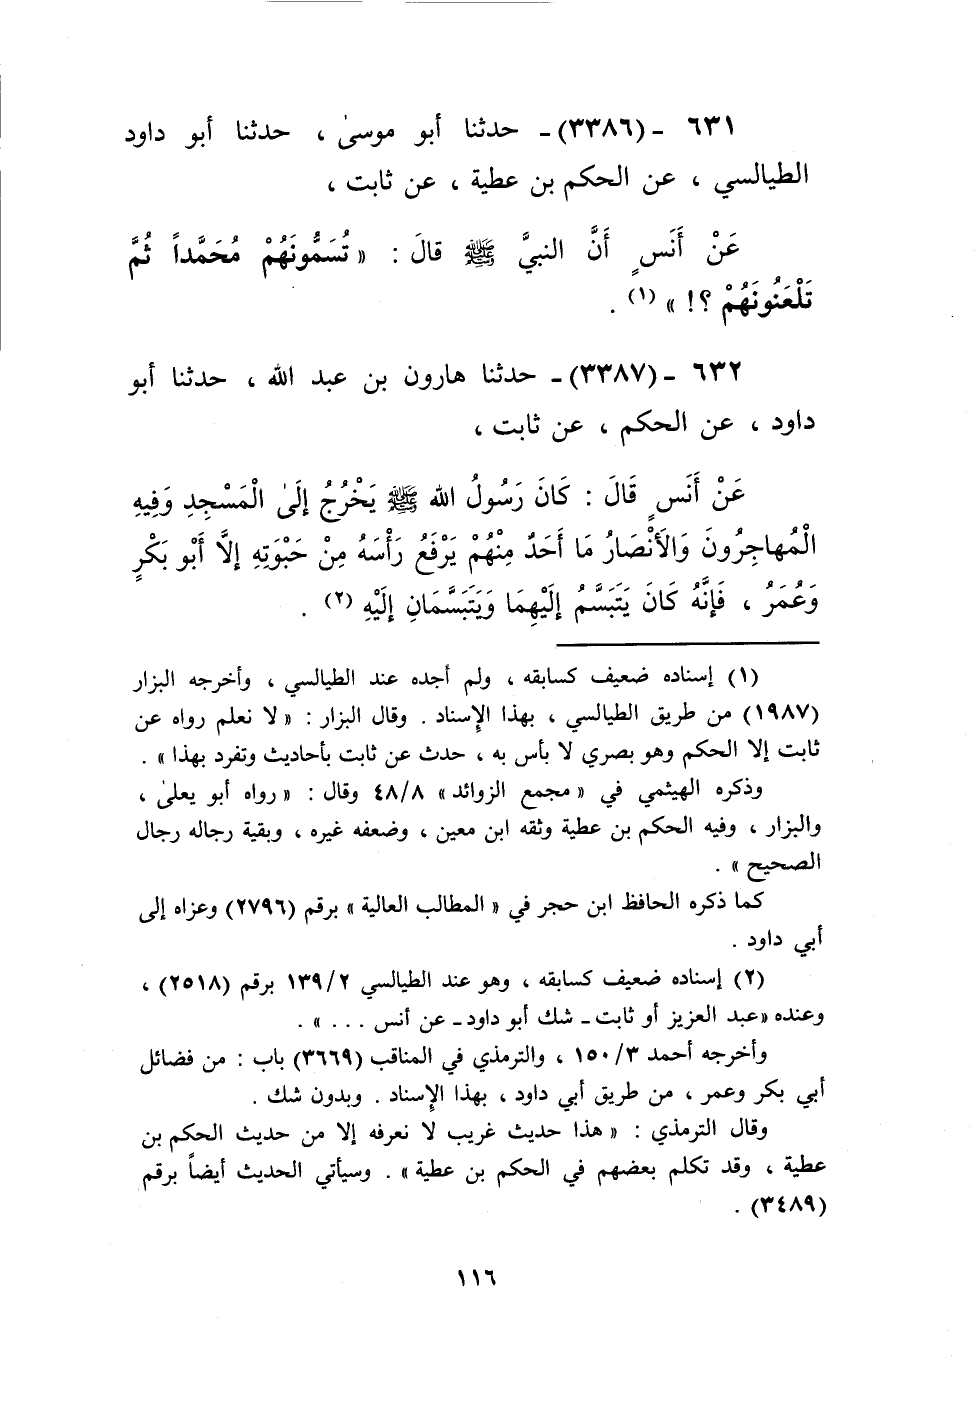 ٦٣١ - (٣٣٨٦) - حدثنا أبو موسىٰ ، حدثنا أبو داود
الطيالسي ، عن الحكم بن عطية ، عن ثابت ،
عَنْ أَنَسٍ أَنَّ النبيَّ ﷺ قالَ : « تُسَمُّونَهُمْ مُحَمَّداً ثُمَّ
تَلْعَنُونَهُمْ ؟! » (١) .
٦٣٢ - (٣٣٨٧) - حدثنا هارون بن عبد الله ، حدثنا أبو
داود ، عن الحكم ، عن ثابت ،
عَنْ أَنَسٍ قَالَ : كَانَ رَسُولُ الله ﷺ يَخْرُجُ إِلَىٰ الْمَسْجِدِ وَفِيهِ
الْمُهاجِرُونَ وَالأَنْصَارُ مَا أَحَدٌ مِنْهُمْ يَرْفَعُ رَأْسَهُ مِنْ حَبْوَتِهِ إِلاَّ أَبْو بَكْرٍ
وَعُمَرُ ، فَإِنَّهُ كَانَ يَتَبَسَّمُ إِلَيْهِمَا وَيَتَبَسَّمَانِ إِلَيْهِ (٢) .
(١) إسناده ضعيف كسابقه ، ولم أجده عند الطيالسي ، وأخرجه البزار
(١٩٨٧) من طريق الطيالسي ، بهذا الإسناد . وقال البزار : « لا نعلم رواه عن
ثابت إلا الحكم وهو بصري لا بأس به ، حدث عن ثابت بأحاديث وتفرد بهذا » .
وذكره الهيثمي في « مجمع الزوائد » ٤٨/٨ وقال : « رواه أبو يعلىٰ ،
والبزار ، وفيه الحكم بن عطية وثقه ابن معين ، وضعفه غيره ، وبقية رجاله رجال
الصحيح » .
كما ذكره الحافظ ابن حجر في « المطالب العالية » برقم (٢٧٩٦) وعزاه إلى
أبي داود .
(٢) إسناده ضعيف كسابقه ، وهو عند الطيالسي ١٣٩/٢ برقم (٢٥١٨) ،
وعنده «عبد العزيز أو ثابت - شك أبو داود - عن أنس . . . » .
وأخرجه أحمد ١٥٠/٣ ، والترمذي في المناقب (٣٦٦٩) باب : من فضائل
أبي بكر وعمر ، من طريق أبي داود ، بهذا الإسناد . وبدون شك .
وقال الترمذي : « هذا حديث غريب لا نعرفه إلا من حديث الحكم بن
عطية ، وقد تكلم بعضهم في الحكم بن عطية » . وسيأتي الحديث أيضاً برقم
(٣٤٨٩) .
١١٦